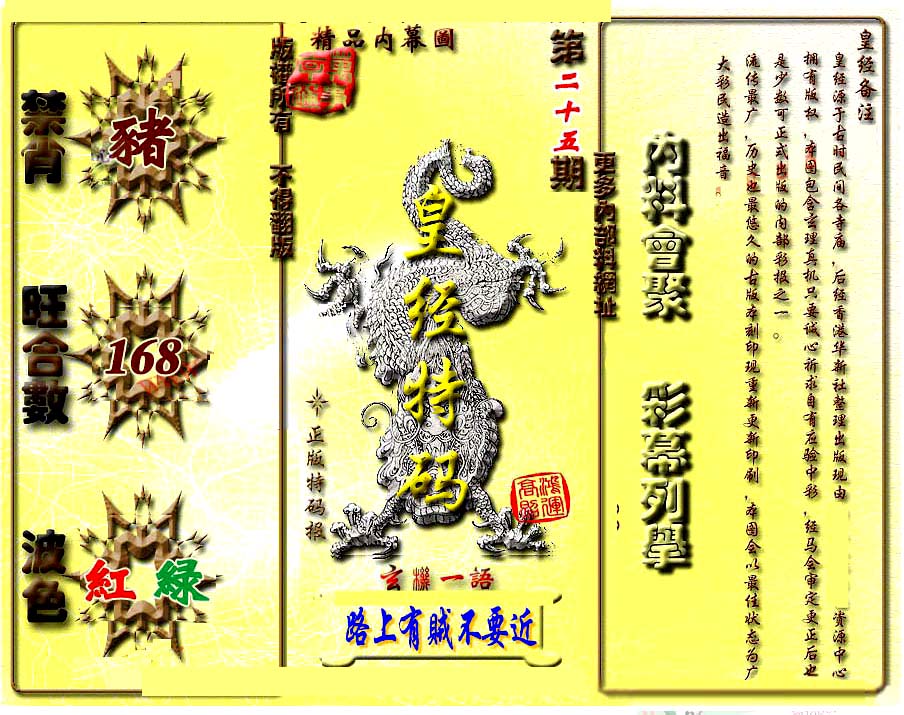 精品内幕圖
第二十五期
版權所有 不得翻版
更多內部料網址
禁肖
豬
旺合數
168
波色
紅 綠
皇经特码
正版特码报
鴻運高照
玄機一語
路上有賊不要近
内料會聚
彩幕列舉
皇经备注
皇经源于古时民间各寺庙,后经香港华新社整理出版现由 资源中心
拥有版权,本图包含玄理真机只要诚心祈求自有应验中彩,经马会审定更正后也
是少数可正式出版的内部彩报之一。
流传最广,历史也最悠久的古版本刻印现重新更新印刷,本图会以最佳状态为广
大彩民造出福音